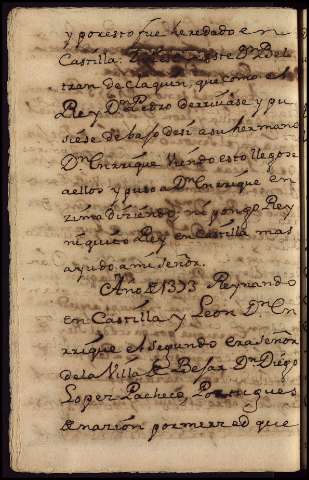 y por esto fue heredado en
Castilla. este Dn Bel
tran de Claquin, que como el
Rey Dn Pedro derriváse y pu
siése de bajo de si a su hermano
Dn Enrrique viendo esto llegose
a ellos y puso a Dn Enrrique en
zima diziendo, ni pongo Rey
ni quito Rey en Castilla mas
ayudo a mi señor.
Año de 1373 Reynando
en Castilla y Leon Dn En
rrique el segundo era señor
de la Villa de Bejar Dn Diégo
Lopez Pacheco, Portugues
de nazion por merzed que